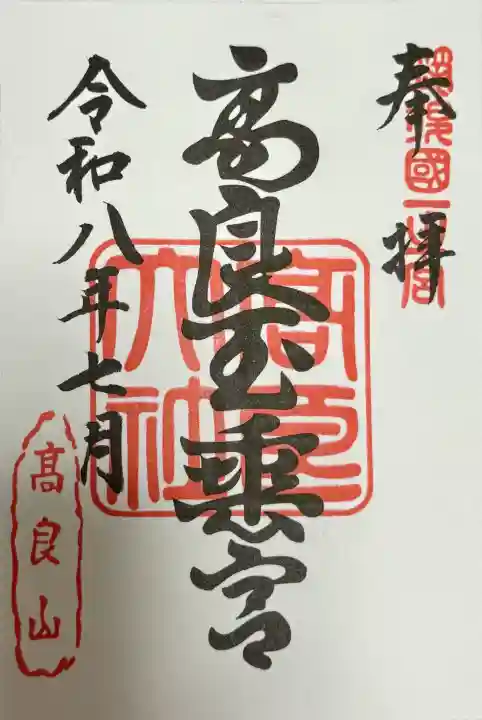 奉拝
筑後國一宮
高良玉垂宮
高良大社
令和八年七月
髙良山